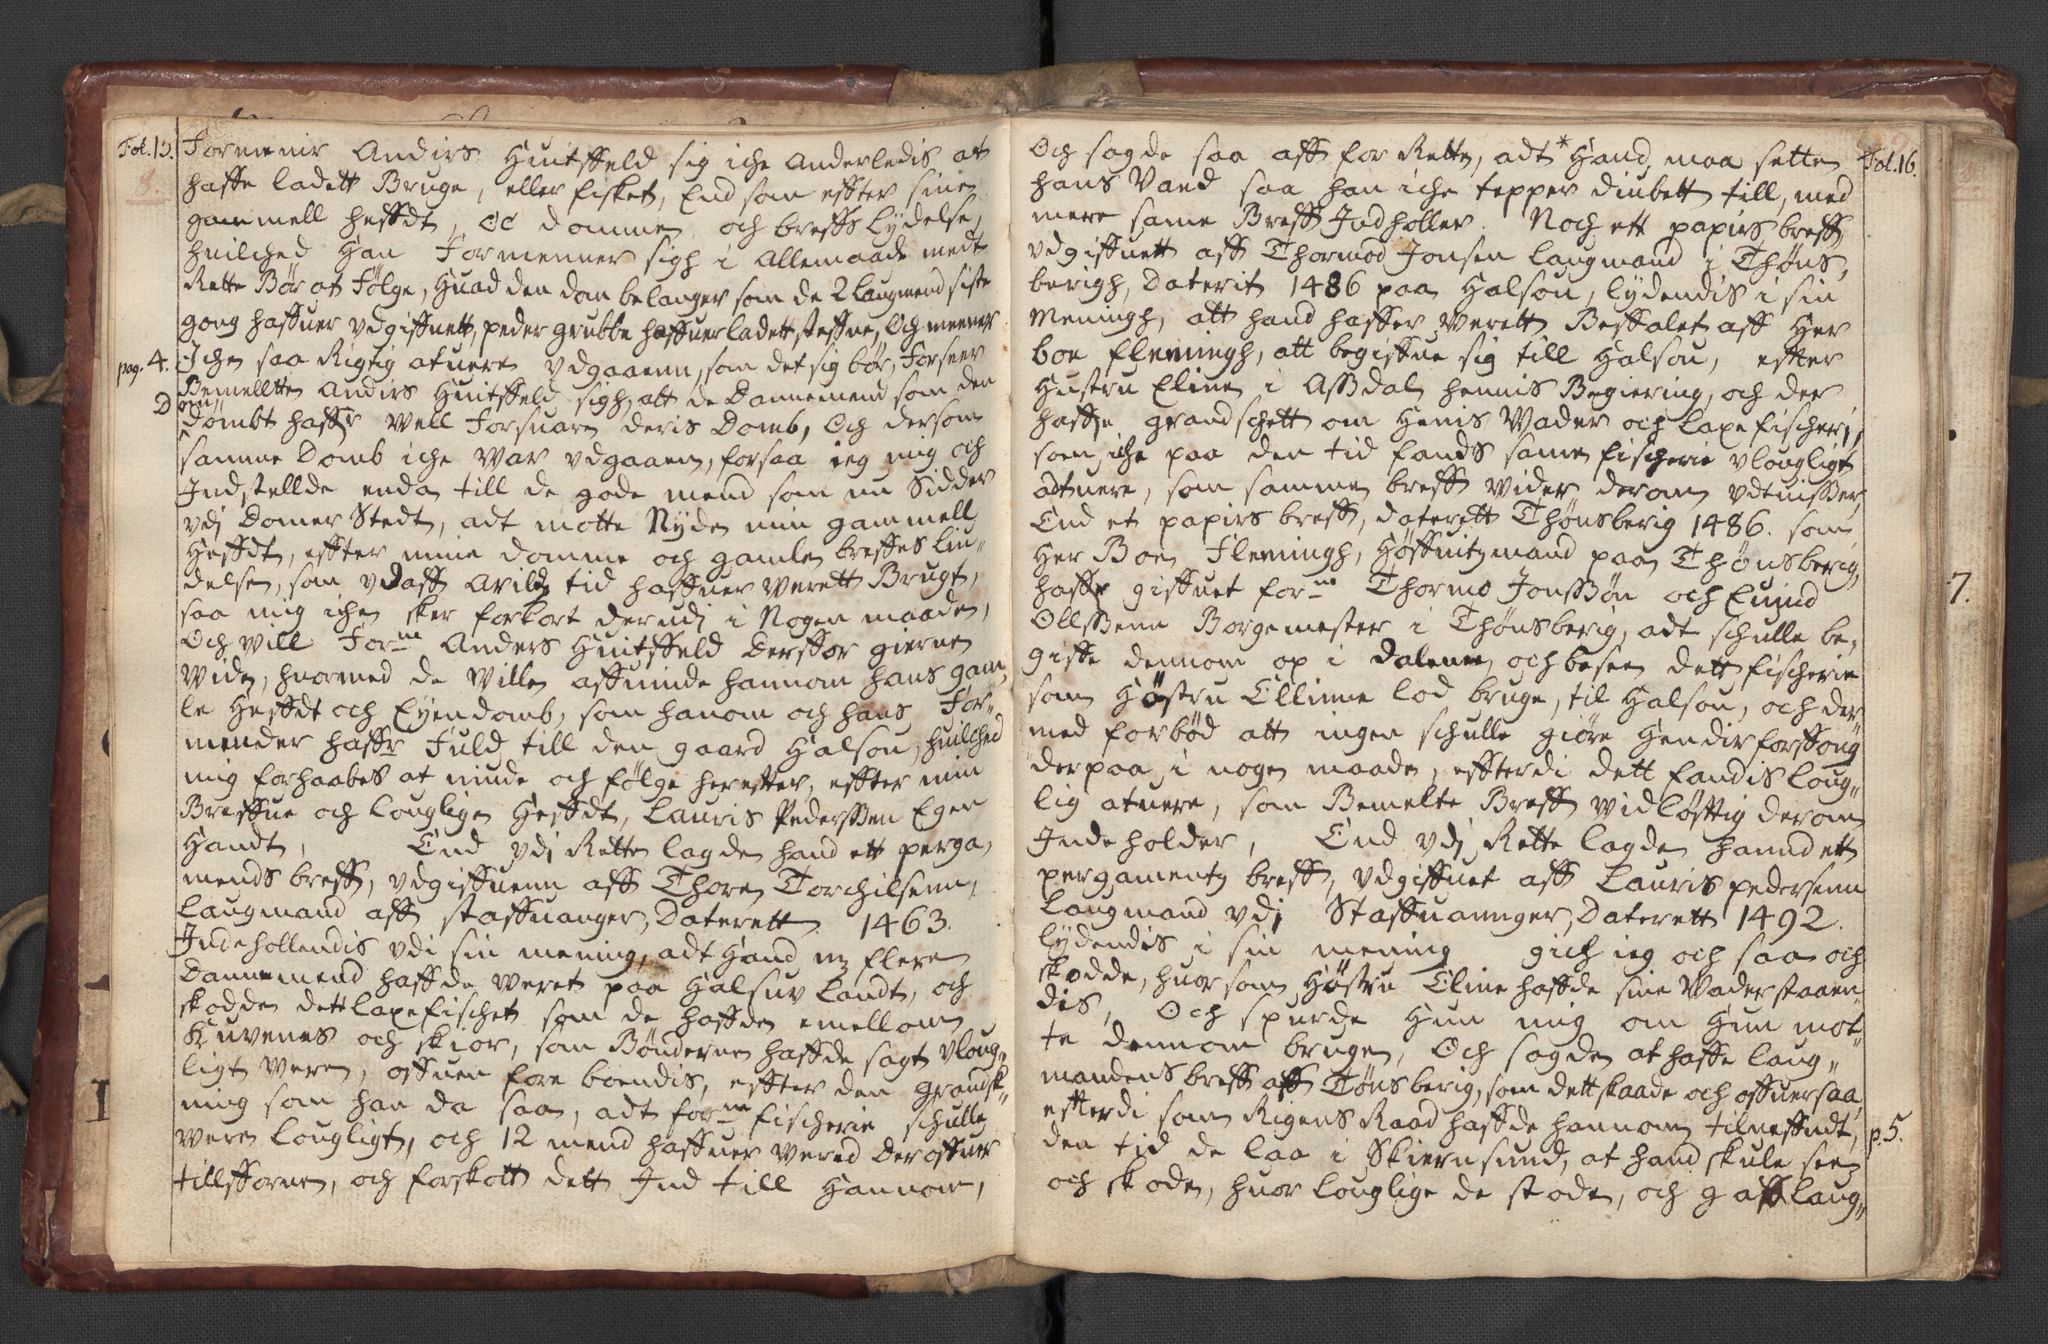 Fol. 15.
8.
Formenir Andirs Huitffeld sig iche Anderledis at
haffe ladett Bruge, eller fisket, End som effter sine
gammell heffdt, oc domme, och breffs Lydelse,
huilched han Formenner sigh i Allemaade medt
Rette Bør at Følge, Huad den dom belanger som de 2 Laugmend siste
gong haffuer udgiffuett, peder grubbe haffuer ladett steffne, Och meener
pag. 4. Ichen saa Rigtig atuere udgaaenn, som det sig bør, Forseer
Bemelltte Andirs Huitffeld sigh, att de Dannemend som den
Dom
dömbt haffr Well Forsuare deris Domb, Och dersom
samme Domb iche War udgaaen, forsaa ieg mig och
Indstellde enda till de gode mend som nu Sidder
udj Domer Stedt, adt motte Nyde min gammell
Heffdt, effter mine domme och gamle breffes liu-
delse, som udaff Arildz tid haffuer Werett Brugt,
saa mig ichen sker forkort derudj i Nogen maade,
Och will For:ne Anders Huitffeld Derffor gierne
Wide, huormed de Wille affuinde hannom hans gam,
le Heffdt och Eyendomb, som hanom och hans For-
mender haffr Fuld till den gaard Halsou, huilched
mig forhaabes at niude och følge herefter, effter min
Breffue och louglige Heffdt, Lauris Pederssen Egen
Handt, End udj Rette lagde hand ett perga,
mends breff, udgiffuenn aff Thore Torchilsenn,
Laugmand aff staffuanger, Daterett 1463.
Indehollendis udi sin mening, adt Hand m; flere
Dannemend haffde Weret paa Halsuv Landt, och
skodde dett Laxefischet som de haffde emellom
Kuvenes och skior, som Bønderne haffde sagt uloug-
ligt Were, offuen fore boendis, effter den gransk-
ning som han da saa, adt for:ne fischerie schulle
Were Lougligt, och 12 mend haffuer Wered der offuer
tillsforne, och forskott dett Ind till Hannom,
Fol. 16.
Och sagde saa aff for Rette, adt * Hand maa sette
hans Vaed saa han iche tepper diubett till, med
mere same Breff Indholler. Noch ett papirs breff
udgiffuett aff Thormod Jonsen Laugmand i Thøns,
berigh, Daterit 1486 paa Halsou, lydendis i sin
Meningh, att hand haffer Werett Beffalet aff Her
boe flemingh, att begiffue sig till Halsou, efter
Hustru Eline i Assdal hennis Begiering, och der
haffe grandschett om Henis Wader och Laxefischeri,
som iche paa den tid fands samme fischerie ulougligt
adtuere, som samme breff Wider derom udtuisser,
End et papirs breff, daterett Thønsberig 1486. som
Her Boe Flemingh, Høffuitzmand paa Thønsberig,
haffr giffuet for:ne Thormo Jonssøn och Euind
Ollssenn Borgemester i Thønsberig, adt schulle be,
giffe dennom op i dalenne, och besee dett fischerie
som Høstru Ellinne lod bruge, til Halsou, och der
med forbød att ingen schulle giöre Hendir forfong
derpaa, i nogen maade, effterdi dett fandis loug-
lig atuere, som Bemelte Breff Widløfftig derom
Indeholder, End udj Rette lagde hannd ett
pergamentz breff, udgiffuet aff Lauris pedersenn
Laugmand udj Staffuannger, Daterett 1492.
lydendis i sin mening gich ieg och saa och
skodde, huorsom Høstru Eline haffde sine Wader staaen-
dis, Och spurde Hun mig om Hun mot-
te dennom bruge, Och sagde at haffe Laug-
mandens breff aff Tønsberig, som dett skaade och offuersaa,
effterdi som Rigens Raad haffde hannom tilneffndt,
p. 5.
den tid de laa i Skiernsund, at hand skule see
och skode, huor louglige de stode, och gaff Laug-
7.
I